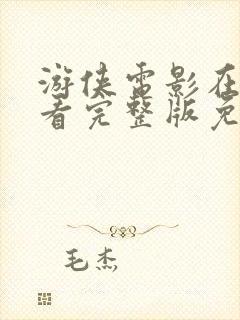 游侠电影在
看完整版免
毛杰